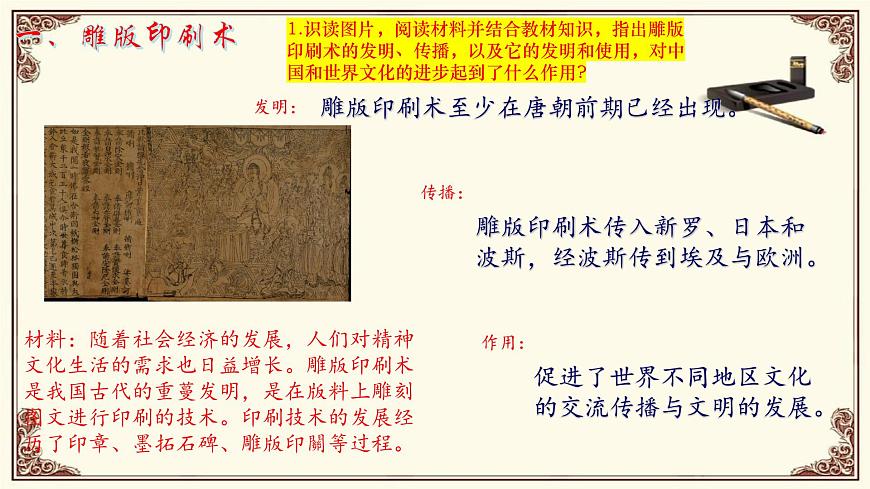 一、雕版印刷术
1.识读图片，阅读材料并结合教材知识，指出雕版
印刷术的发明、传播，以及它的发明和使用，对中
国和世界文化的进步起到了什么作用?
发明：
雕版印刷术至少在唐朝前期已经出现。
传播：
雕版印刷术传入新罗、日本和
波斯，经波斯传到埃及与欧洲。
材料：随着社会经济的发展，人们对精神
文化生活的需求也日益增长。雕版印刷术
是我国古代的重蔓发明，是在版料上雕刻
图文进行印刷的技术。印刷技术的发展经
历了印章、墨拓石碑、雕版印關等过程。
作用：
促进了世界不同地区文化
的交流传播与文明的发展。